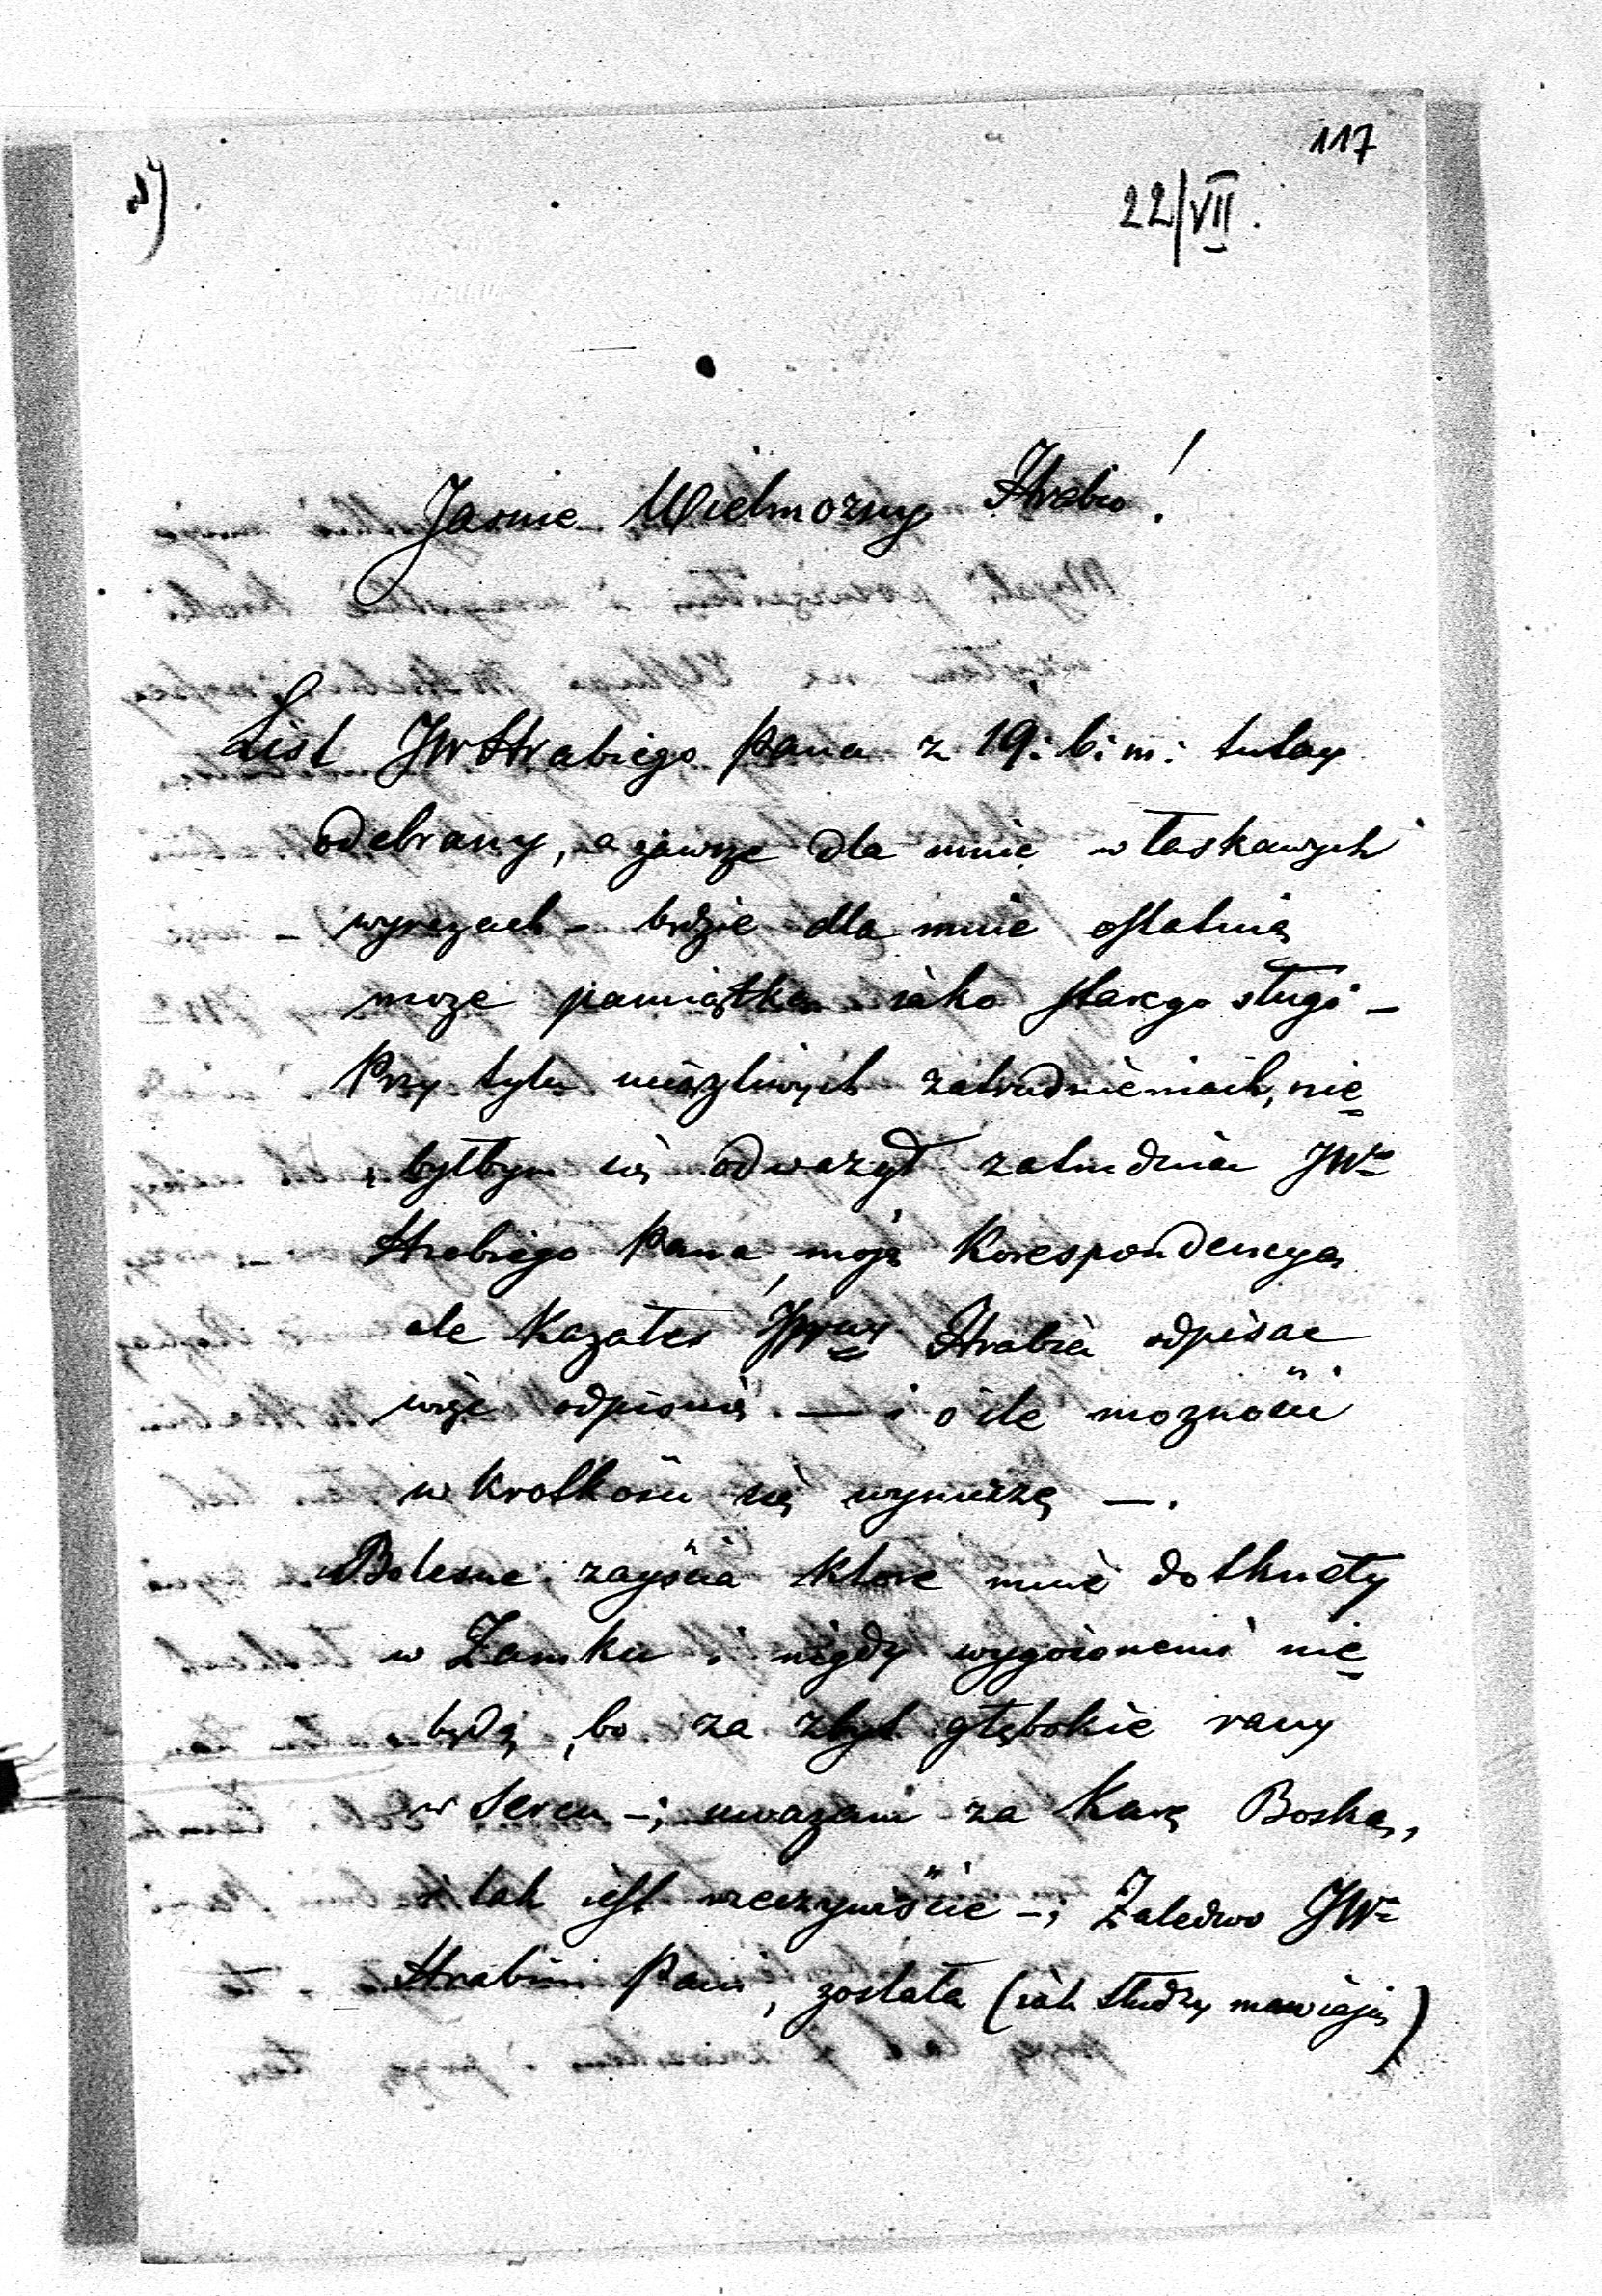 117
22/VII.
Jasnie Wielmozny Hrabio!
List JWHrabiego Pana z 19. b: m: tutay
odebrany, a zawsze dla mnie w łaskawych
wyrazach – będzie dla mnie ostatnią
może pamiątką iako starego sługi –
Przy tylu uciążliwych zatrudnieniach, nie
byłbym się odważył zatrudniać JWo
Hrabiego Pana, moją Korespondencyą
ale Kazałeś Hrabia odpisac
więc odpisuię – i o ile moznosci
w krotkosci się wynurzę –.
Bolesne zayścia ktore mnie dotknęły
w Zamku i nigdy wygoionemi nie
będą, bo za zbyt głębokie rany
w sercu –; uwazam za Karę Boską,
i tak iest rzeczywiście –; Zaledwo JWa
Hrabini Pani, została (iak słudzy mawiaią)